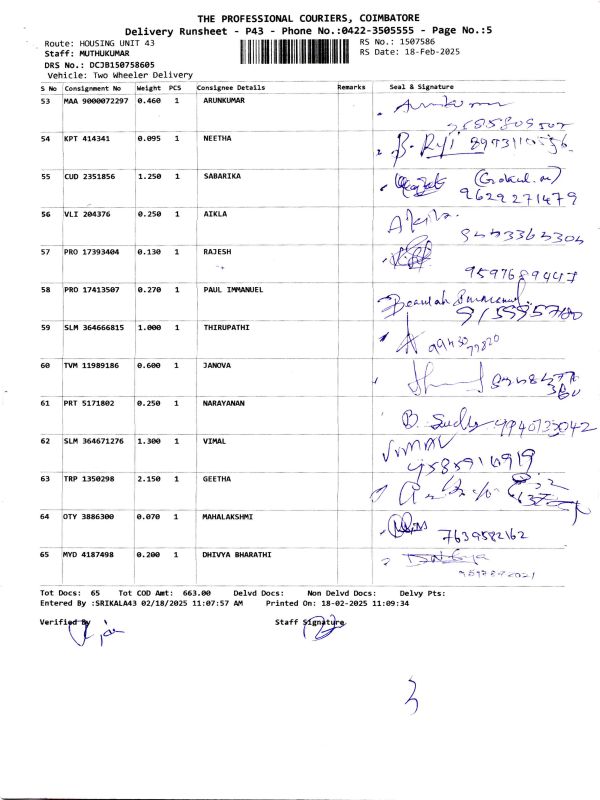 THE PROFESSIONAL COURIERS, COIMBATORE
Delivery Runsheet - P43 - Phone No.:0422-3505555 - Page No.:5
Route: HOUSING UNIT 43
RS No.: 1507586
Staff: MUTHUKUMAR
RS Date: 18-Feb-2025
DRS No.: DCJB150758605
Vehicle: Two Wheeler Delivery
S No Consignment No Weight PCS Consignee Details Remarks Seal & Signature
53 MAA 9000072297 0.460 1 ARUNKUMAR Arunkumar
54 KPT 414341 0.095 1 NEETHA
55 CUD 2351856 1.250 1 SABARIKA
9629271479
56 VLI 204376 0.250 1 AIKLA Akila
57 PRO 17393404 0.130 1 RAJESH
58 PRO 17413507 0.270 1 PAUL IMMANUEL
59 SLM 364666815 1.000 1 THIRUPATHI
60 TVM 11989186 0.600 1 JANOVA
61 PRT 5171802 0.250 1 NARAYANAN
62 SLM 364671276 1.300 1 VIMAL VIMAL
63 TRP 1350298 2.150 1 GEETHA
64 OTY 3886300 0.070 1 MAHALAKSHMI
7639582162
65 MYD 4187498 0.200 1 DHIVYA BHARATHI
Tot Docs: 65 Tot COD Amt: 663.00 Delvd Docs: Non Delvd Docs: Delvy Pts:
Entered By :SRIKALA43 02/18/2025 11:07:57 AM Printed On: 18-02-2025 11:09:34
Verified By Staff Signature